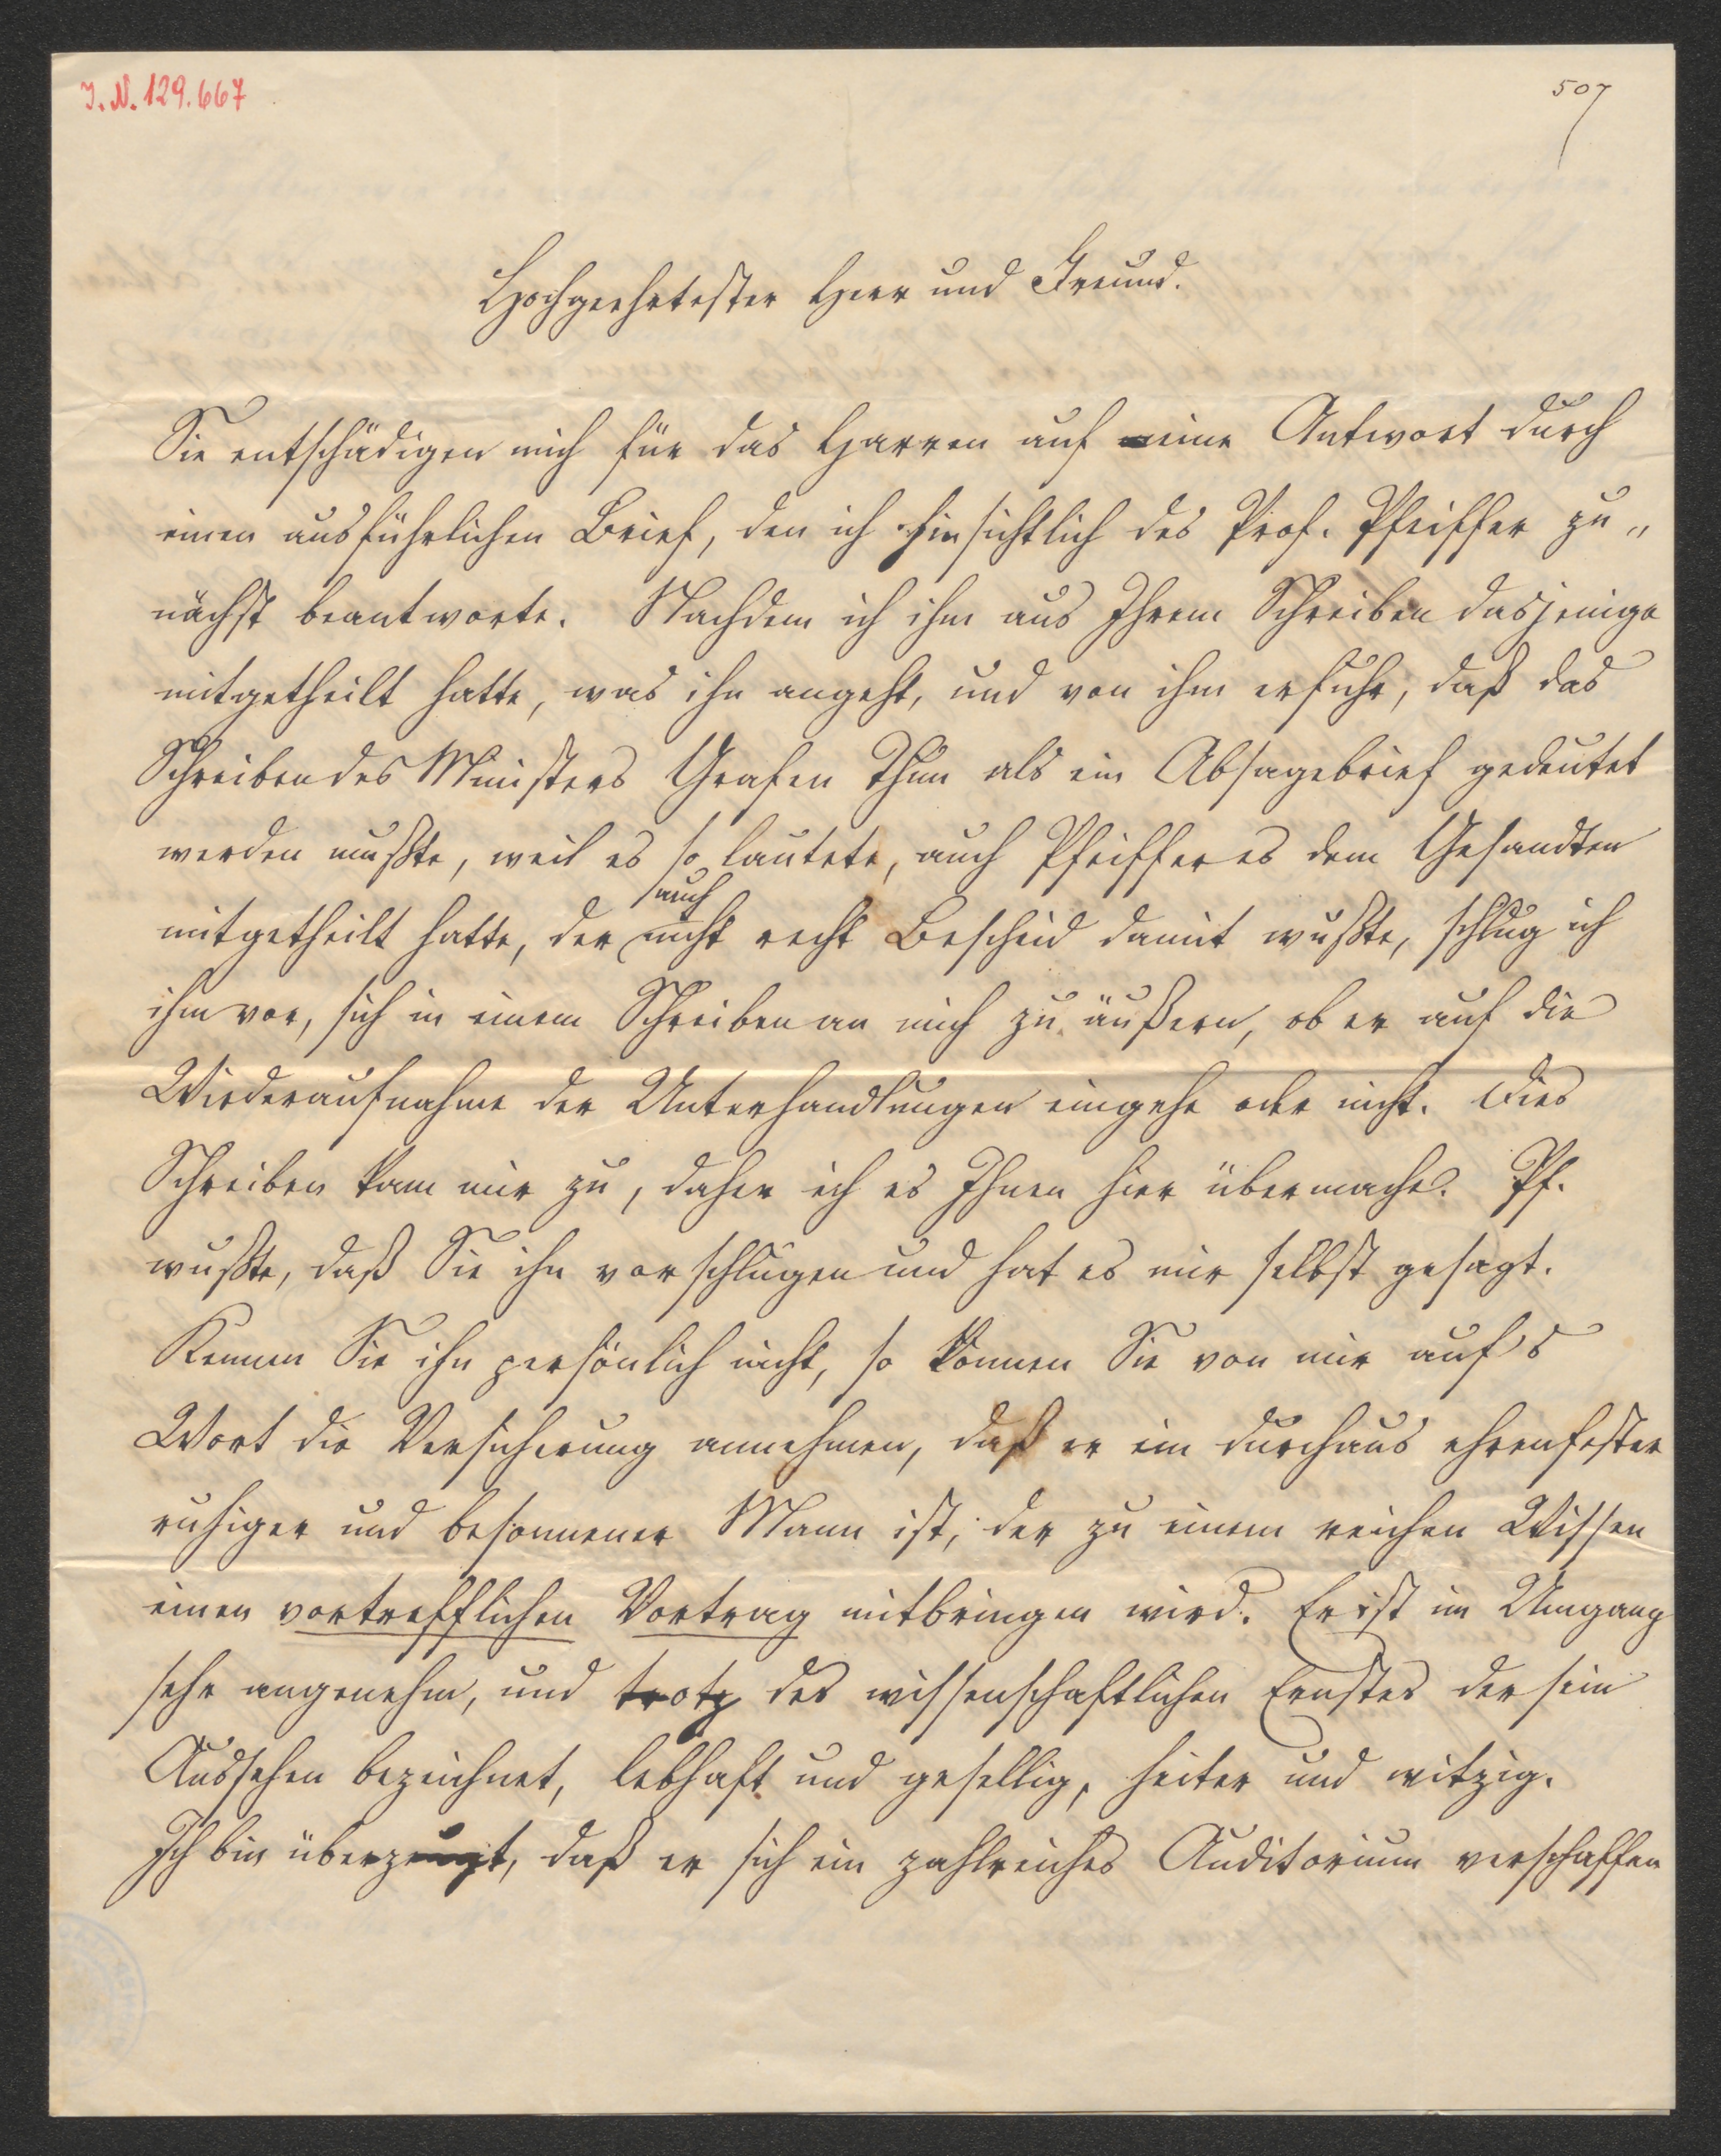 I. N. 129.667
507
Hochgeehrtester Herr und Freund.
Sie entschädigen mich für das Harren auf eine Antwort durch
einen ausführlichen Brief, den ich hinsichtlich des Prof. Pfeiffer zu„
nächst beantworte. Nachdem ich ihm aus Ihrem Schreiben dasjenige
mitgetheilt hatte, was ihn angeht, und von ihm erfuhr, daß das
Schreiben des Ministers Grafen Thun als ein Absagebrief gedeutet
werden mußte, weil es so lautete, auch Pfeiffer es dem Gesandten
auch
mitgetheilt hatte, der nicht recht Bescheid damit wußte, schlug ich
ihm vor, sich in einem Schreiben an mich zu äußern, ob er auf die
Wiederaufnahme der Unterhandlungen eingehe oder nicht. Dies
Schreiben kam mir zu, daher ich es Ihnen hier übermache. Pf.
wußte, daß Sie ihn vorschlugen und hat es mir selbst gesagt.
Kennen Sie ihn persönlich nicht, so können Sie von mir auf's
Wort die Versicherung annehmen, daß er ein durchaus ehrenfester
ruhiger und besonnener Mann ist, der zu einem reichen Wissen
einen vortrefflichen Vortrag mitbringen wird. Er ist im Umgang
sehr angenehm, und trotz des wissenschaftlichen Ernstes der sein
Aussehen bezeichnet, lebhaft und gesellig, heiter und witzig.
Ich bin überzeugt, daß er sich ein zahlreiches Auditorium verschaffen